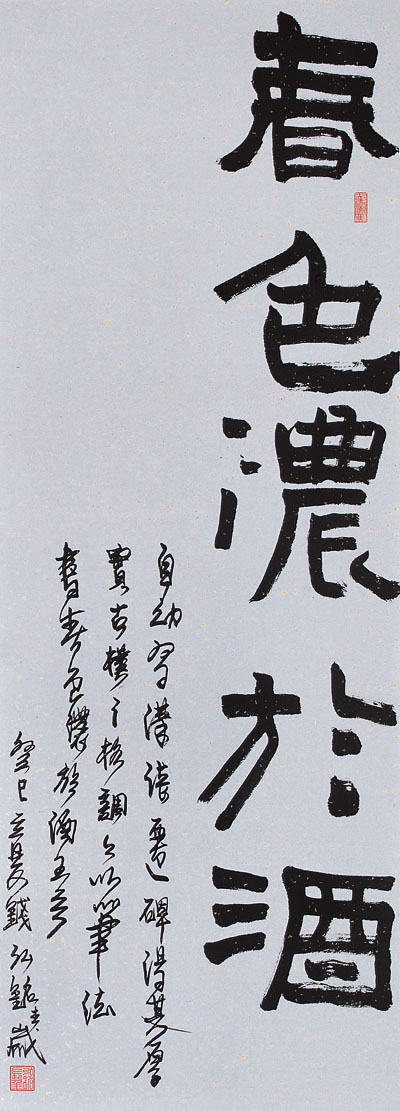 春色濃於酒
自幼習漢張遷碑得其厚
實古樸之格調今以筆法
書春色濃於酒五言
癸巳立夏錢弘銘